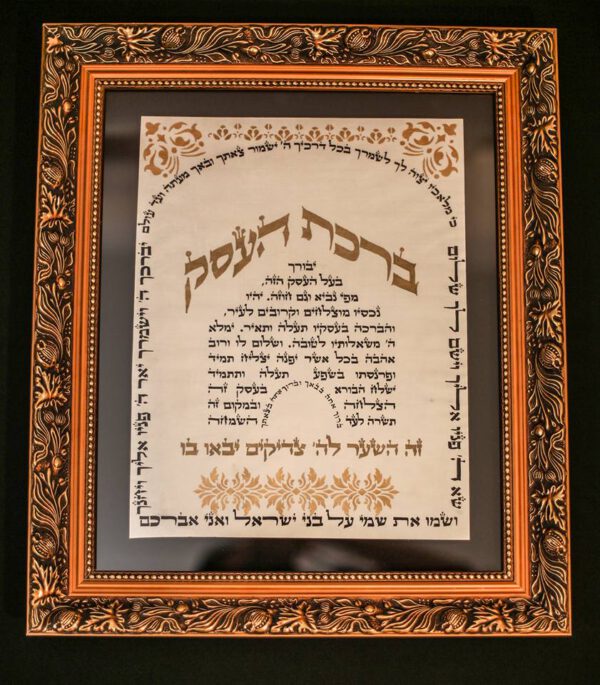 כי מלאכיו יצוה לך לשמרך בכל דרכיך ה' ישמור צאתך ובאך מעתה ועד עולם
יברכך ה' וישמרך יאר ה' פניו אליך ויחנך
ישא ה' פניו אליך וישם לך שלום
ברכת העסק
יבורך
בעל העסק הזה,
מפי נביא וגם חוזה. יהיו
נכסיו מוצלחים וקרובים לעיר,
והברכה בעסקיו תעלה ותאיר. ימלא
ה' משאלותיו לטובה, ושלום לו ורוב
אהבה בכל אשר יפנה יצליח תמיד
ופרנסתו בשפע תעלה ותתמיד
ישלח הבורא בעסק זה
הצלחה ובמקום זה
תשרה לעד השמחה
ברוך אתה בבאך וברוך אתה בצאתך
זה השער לה' צדיקים יבאו בו
ושמו את שמי על בני ישראל ואני אברכם